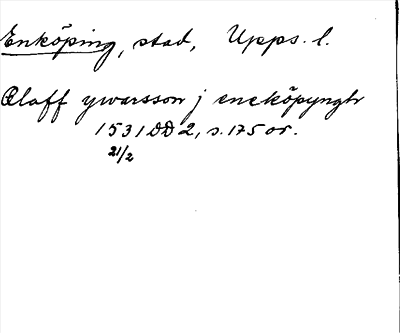 Enköping, stad, Upps. l.
Olaff ywarsson j eneköpyngh
1531 DD 2, s. 175 or.
21/2